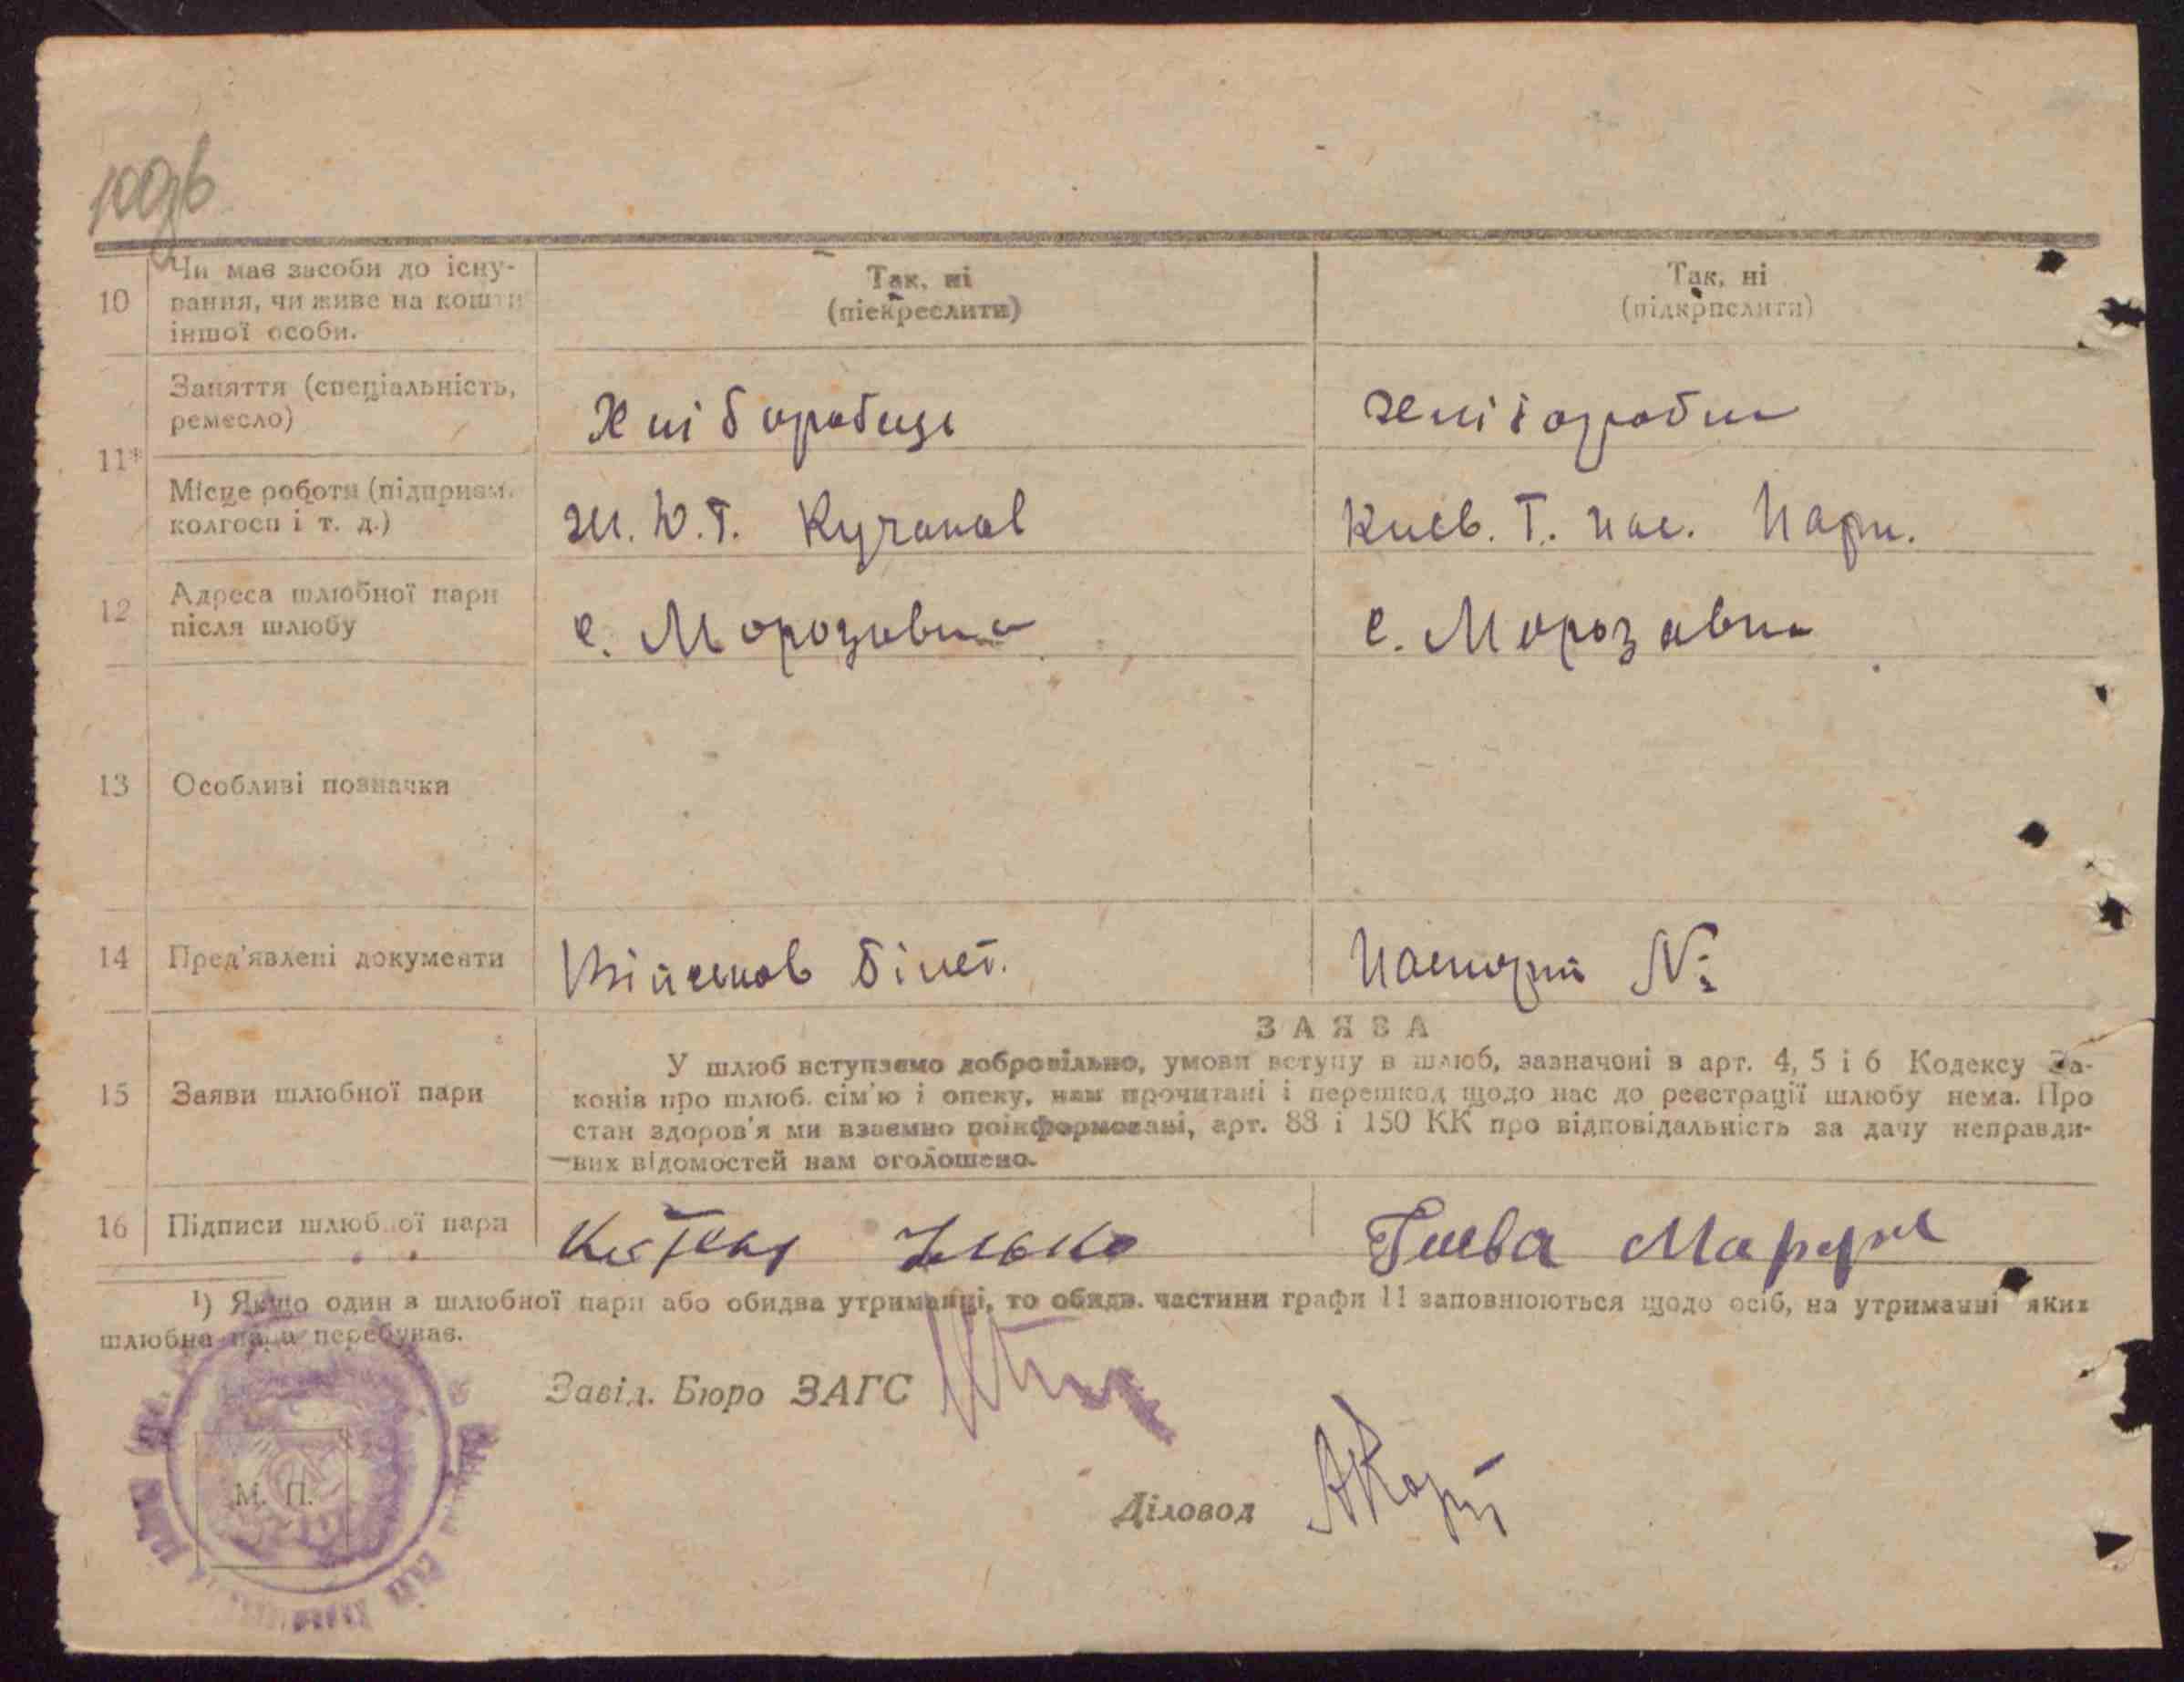 10
Чи має засоби до існу-
вання, чи живе на кошти
іншої особи.
Так, ні
(піекреслити)
Так, ні
(підкрпслити)
11*
Заняття (спеціальність,
ремесло)
Хліборобець
хлібороби
Місце роботи (підприєм.
колгосп і т. д.)
Киев. Т.
12
Адреса шлюбної пари
після шлюбу
с. Морозовка
с. Морозавка
13
Особливі позначки
14
Пред'явлені документи
Війсков білет.
Паспорт №
15
Заяви шлюбної пари
ЗАЯВА
У шлюб вступаємо добровільно, умови вступу в шлюб, зазначені в арт. 4, 5 і 6 Кодексу За-
конів про шлюб. сім'ю і опеку, нам прочитані і перешкод щодо нас до реєстрації шлюбу нема. Про
стан здоров'я ми взаємно поінформовані, арт. 88 і 150 КК про відповідальність за дачу неправди-
вих відомостей нам оголошено.
16
Підписи шлюбної пари
¹) Якщо один з шлюбної пари або обидва утриманці, то обидв. частини графи 11 заповнюються щодо осіб, на утриманні яких
шлюбна пара перебуває.
Завід. Бюро ЗАГС
М. П.
Діловод